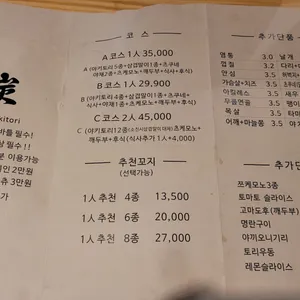 코 스
A코스 1인 35,000
A (야키토리5종+삼겹말이1종+츠쿠네
야채2종+츠케모노+깨두부+식사+후식)
B코스 1인 29,900
B (야키토리4종+삼겹말이1종+츠쿠네+
야채1종+츠케모노+식사+후식)
C코스 2인 45,000
C (야키토리12종(대신삼겹말이 대체)츠케모노+
깨두부+후식(식사추가 1인+4,000)
추천꼬지
(선택가능)
1인 추천 4종 13,500
1인 추천 6종 20,000
1인 추천 8종 27,000
炭
kitori
필수!
필수!!
이용가능
2만원
3만원
가
추가단품
염통 3.0 날개
껍질 3.2 다리+
안심 3.5
가슴살+치즈 3.5
아킬레스 3.5 새우
무릎연골 3.5 팽이
목살 3.5 타마
어깨+마늘쫑 3.5 야채
추가단
쯔케모노3종
토마토 슬라이스
고마도후(깨두부)
명란구이
야끼오니기리
토리우동
레몬슬라이스